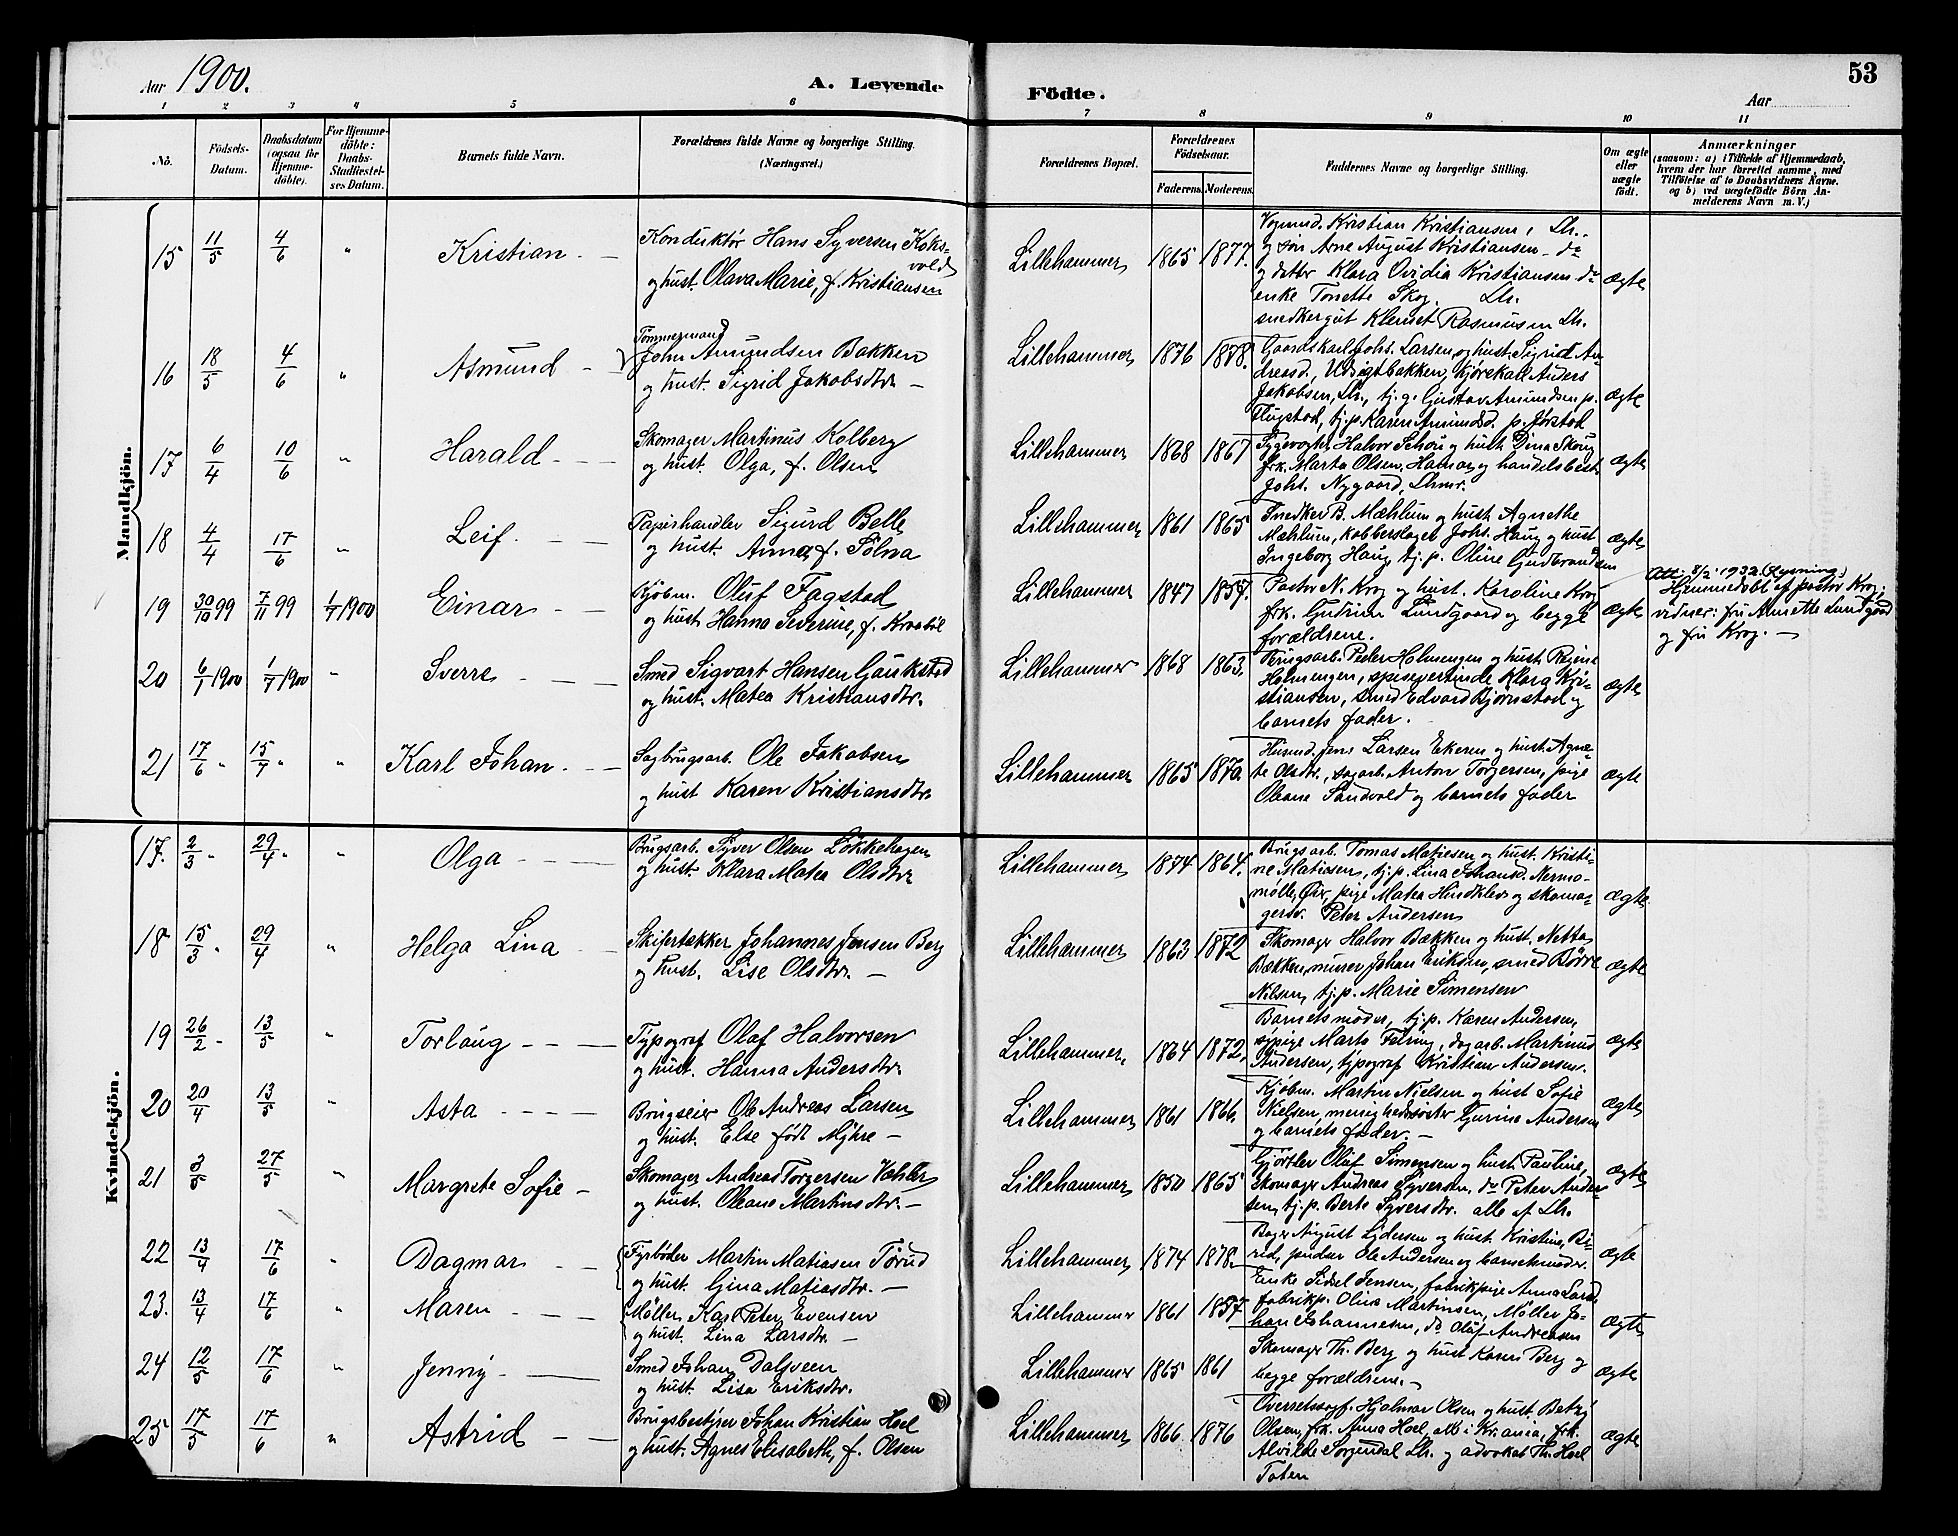 53
Aar 1900.
A. Levende Födte.
Aar
1 2 3 4 5 6 7 8 9 10 11
No.
Födsels-Datum.
Daabsdatum (ogsaa for Hjemme-döbte).
For Hjemme-döbte: Daabs-Stadfæstel-ses Datum.
Barnets fulde Navn.
Forældrenes fulde Navne og borgerlige Stilling. (Næringsvei.)
Forældrenes Bopæl.
Forældrenes Födselsaar.
Faderens. Moderens.
Faddernes Navne og borgerlige Stilling.
Om ægte eller uægte födt.
Anmærkninger
(saasom: a) i Tilfælde af Hjemmedaab,
hvem der har forrettet samme, med
Tilföielse af to Daabsvidners Navne.
og b) ved uægtefödte Börn An-
melderens Navn m. V.)
Mandkjön.
15 11/5 4/6 " Kristian. — Konduktör Hans Syversen Koks-
vold
og hust. Olava Marie, f. Kristiansen
Lillehammer 1865 1877.
Kristian Kristiansen, Lh.
og sön Arne August Kristiansen do
og datter Klara Ovidia Kristiansen do
enke Tonette Skog. Lh.
snedkergut Klemet Rasmussen Lh.
ægte
16 18/5 4/6 " Asmund —
Tömmermand
John Amundsen Bakken
og hust. Sigrid Jakobsdtr. —
Lillehammer 1876 1878.
Gaardskarl Johs. Larsen og hust. Sigrid An-
dreasd., Udsigtbakken, kjörekarl Anders
Jakobsen, Lh., tj.g. Gustav Amundsen p.
Flugstad, tj.p. Karen Amundsd. p. Jörstad
ægte
17 6/4 10/6 " Harald — Skomager Martinus Kolberg
og hust. Olga, f. Olsen
Lillehammer 1868 1867
Sygevogter Halvor Schou og hust. Dina Skoug
frk. Marta Olsen, Hamar, og handelsbest.
Johs. Nygaard, Lhmr.
ægte
18 4/4 17/6 " Leif. — Papirhandler Sigurd Belle
og hust. Anna, f. Sölna
Lillehammer 1861 1865
Snedker B. Mæhlum og hust. Agnethe
Mæhlum, kobberslager Johs. Haug og hust
Ingeborg Haug, tj.p. Oline Gudbrandsen
ægte
19 30/10 99 7/11 99 1/7 1900 Einar — Kjöbm. Oluf Fagstad
og hust. Hanna Severine, f. Kraaböl
Lillehammer 1847 1857.
Pastor N. Krog og hust. Karoline Krog
frk. Gudrun Lundgaard og begge
forældrene.
ægte
Att. 8/2 1932 (Lysning)
Hjemmedöbt af pastor Krog;
vidner: fru Annette Lundgaard
og fru Krog. —
20 6/1 1900 1/7 1900 " Sverre — Smed Sigvart Hansen Gaukstad
og hust. Matea Kristiansdtr.
Lillehammer 1868 1863.
Brugsarb. Peder Holmengen og hust. Regine
Holmengen, spisevertinde Klara Kri-
stiansen, smed Edvard Bjørnstad og
barnets fader.
ægte
21 17/6 " 15/7 " " Karl Johan. — Sagbrugsarb. Ole Jakobsen
og hust Karen Kristiansdtr.
Lillehammer 1865 1870.
Husmd. Jens Larsen Ekeren og hust. Agne-
te Olsdtr., sagarb. Anton Torgersen, pige
Oleane Sandvold og barnets fader
ægte
Kvindekjön.
17. 2/3 " 29/4 " " Olga — Brugsarb. Syver Olsen Lökkehagen
og hust. Klara Matea Olsdtr
Lillehammer 1874 1864.
Brugsarb. Tomas Matiesen og hust. Kristi-
ne Matiesen, tj.p. Lina Johansd. Nermo-
mölle, Öier, pige Matea Hundklev og skoma-
gersv. Peter Andersen
ægte
18 15/3 " 29/4 " Helga Lina — Skifertækker Johannes Jensen Berg
og hust. Lise Olsdtr. —
Lillehammer 1863 1872
Skomager Halvor Bækken og hust. Netta
Bækken, murer Johan Eriksen, smed Börre
Nilsen, tj.p. Marie Simensen
ægte
19 26/2 - 13/5 " Torlaug — Typograf Olaf Halvorsen
og hust. Hanna Andersdtr.
Lillehammer, 1864 1872,
Barnets moder, tj.p. Karen Andersen,
sypige Marta Feiring, dagarb. Martinus
Andersen, typograf Kristian Andersen.
ægte
20 20/4 13/5 " Asta — Brugseier Ole Andreas Larsen
og hust. Else född Myhre —
Lillehammer 1861 1866.
Kjöbm. Martin Nielsen og hust Sofie
Nielsen, menighedssöster Gurine Andersen
og barnets fader. —
ægte
21 3/5 27/5 " Margrete Sofie — Skomager Andreas Torgersen Vahler
og hust. Oleane Martinsdtr. —
Lillehammer 1850 1865
Gjörtler Oluf Simensen og hust. Pauline,
skomager Andreas Syversen, do Peter Ander-
sen, tj.p. Berte Syversdtr. alle af Lh.
ægte
22 13/4 17/6 " Dagmar — Fyrböder Martin Matiasen Törud
og hust. Gina Matiasdtr. —
Lillehammer 1874 1878.
Bager August Lydersen og hust. Kristine, Bi-
rid, Ole Andersen og barnets moder.
ægte
23. 13/4 17/6 " Maren — Möller Karl Peter Evensen
og hust. Lina Larsdtr. —
Lillehammer 1861 1857.
Enke Sidsel Jensen, fabrikpige Anna Larsd
fabrikp. Olina Martinsen, Möller Jo-
han Johannesen, do Oluf Andreasen
ægte
24 12/5 17/6 " Jenny — Smed Johan Dalsveen
og hust. Lisa Eriksdtr.
Lillehammer 1865 1861
Skomager Th. Berg og hust Karen Berg og
begge forældrene. —
ægte
25 17/5 17/6 " Astrid — Brugsbestyrer Johan Kristian Hoel
og hust. Agnes Elisabeth, f. Olsen
Lillehammer 1866 1876
Hjalmar Olsen og hust. Betzy
Olsen, frk. Anna Hoel, alle i Kr.ania, frk.
Alvilde Sorgendal Lh. og advokat Th. Hoel
Toten
ægte